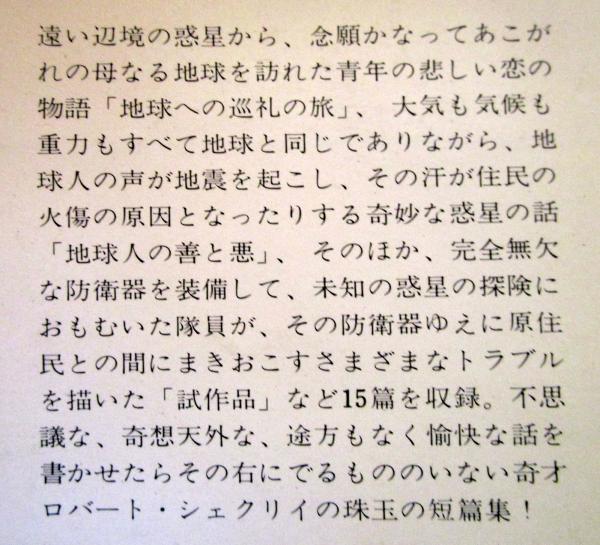 遠い辺境の惑星から、念願かなってあこが
れの母なる地球を訪れた青年の悲しい恋の
物語「地球への巡礼の旅」、大気も気候も
重力もすべて地球と同じでありながら、地
球人の声が地震を起こし、その汗が住民の
火傷の原因となったりする奇妙な惑星の話
「地球人の善と悪」、そのほか、完全無欠
な防衛器を装備して、未知の惑星の探険に
おもむいた隊員が、その防衛器ゆえに原住
民との間にまきおこすさまざまなトラブル
を描いた「試作品」など15篇を収録。不思
議な、奇想天外な、途方もなく愉快な話を
書かせたらその右にでるもののいない奇才
ロバート・シェクリイの珠玉の短篇集！